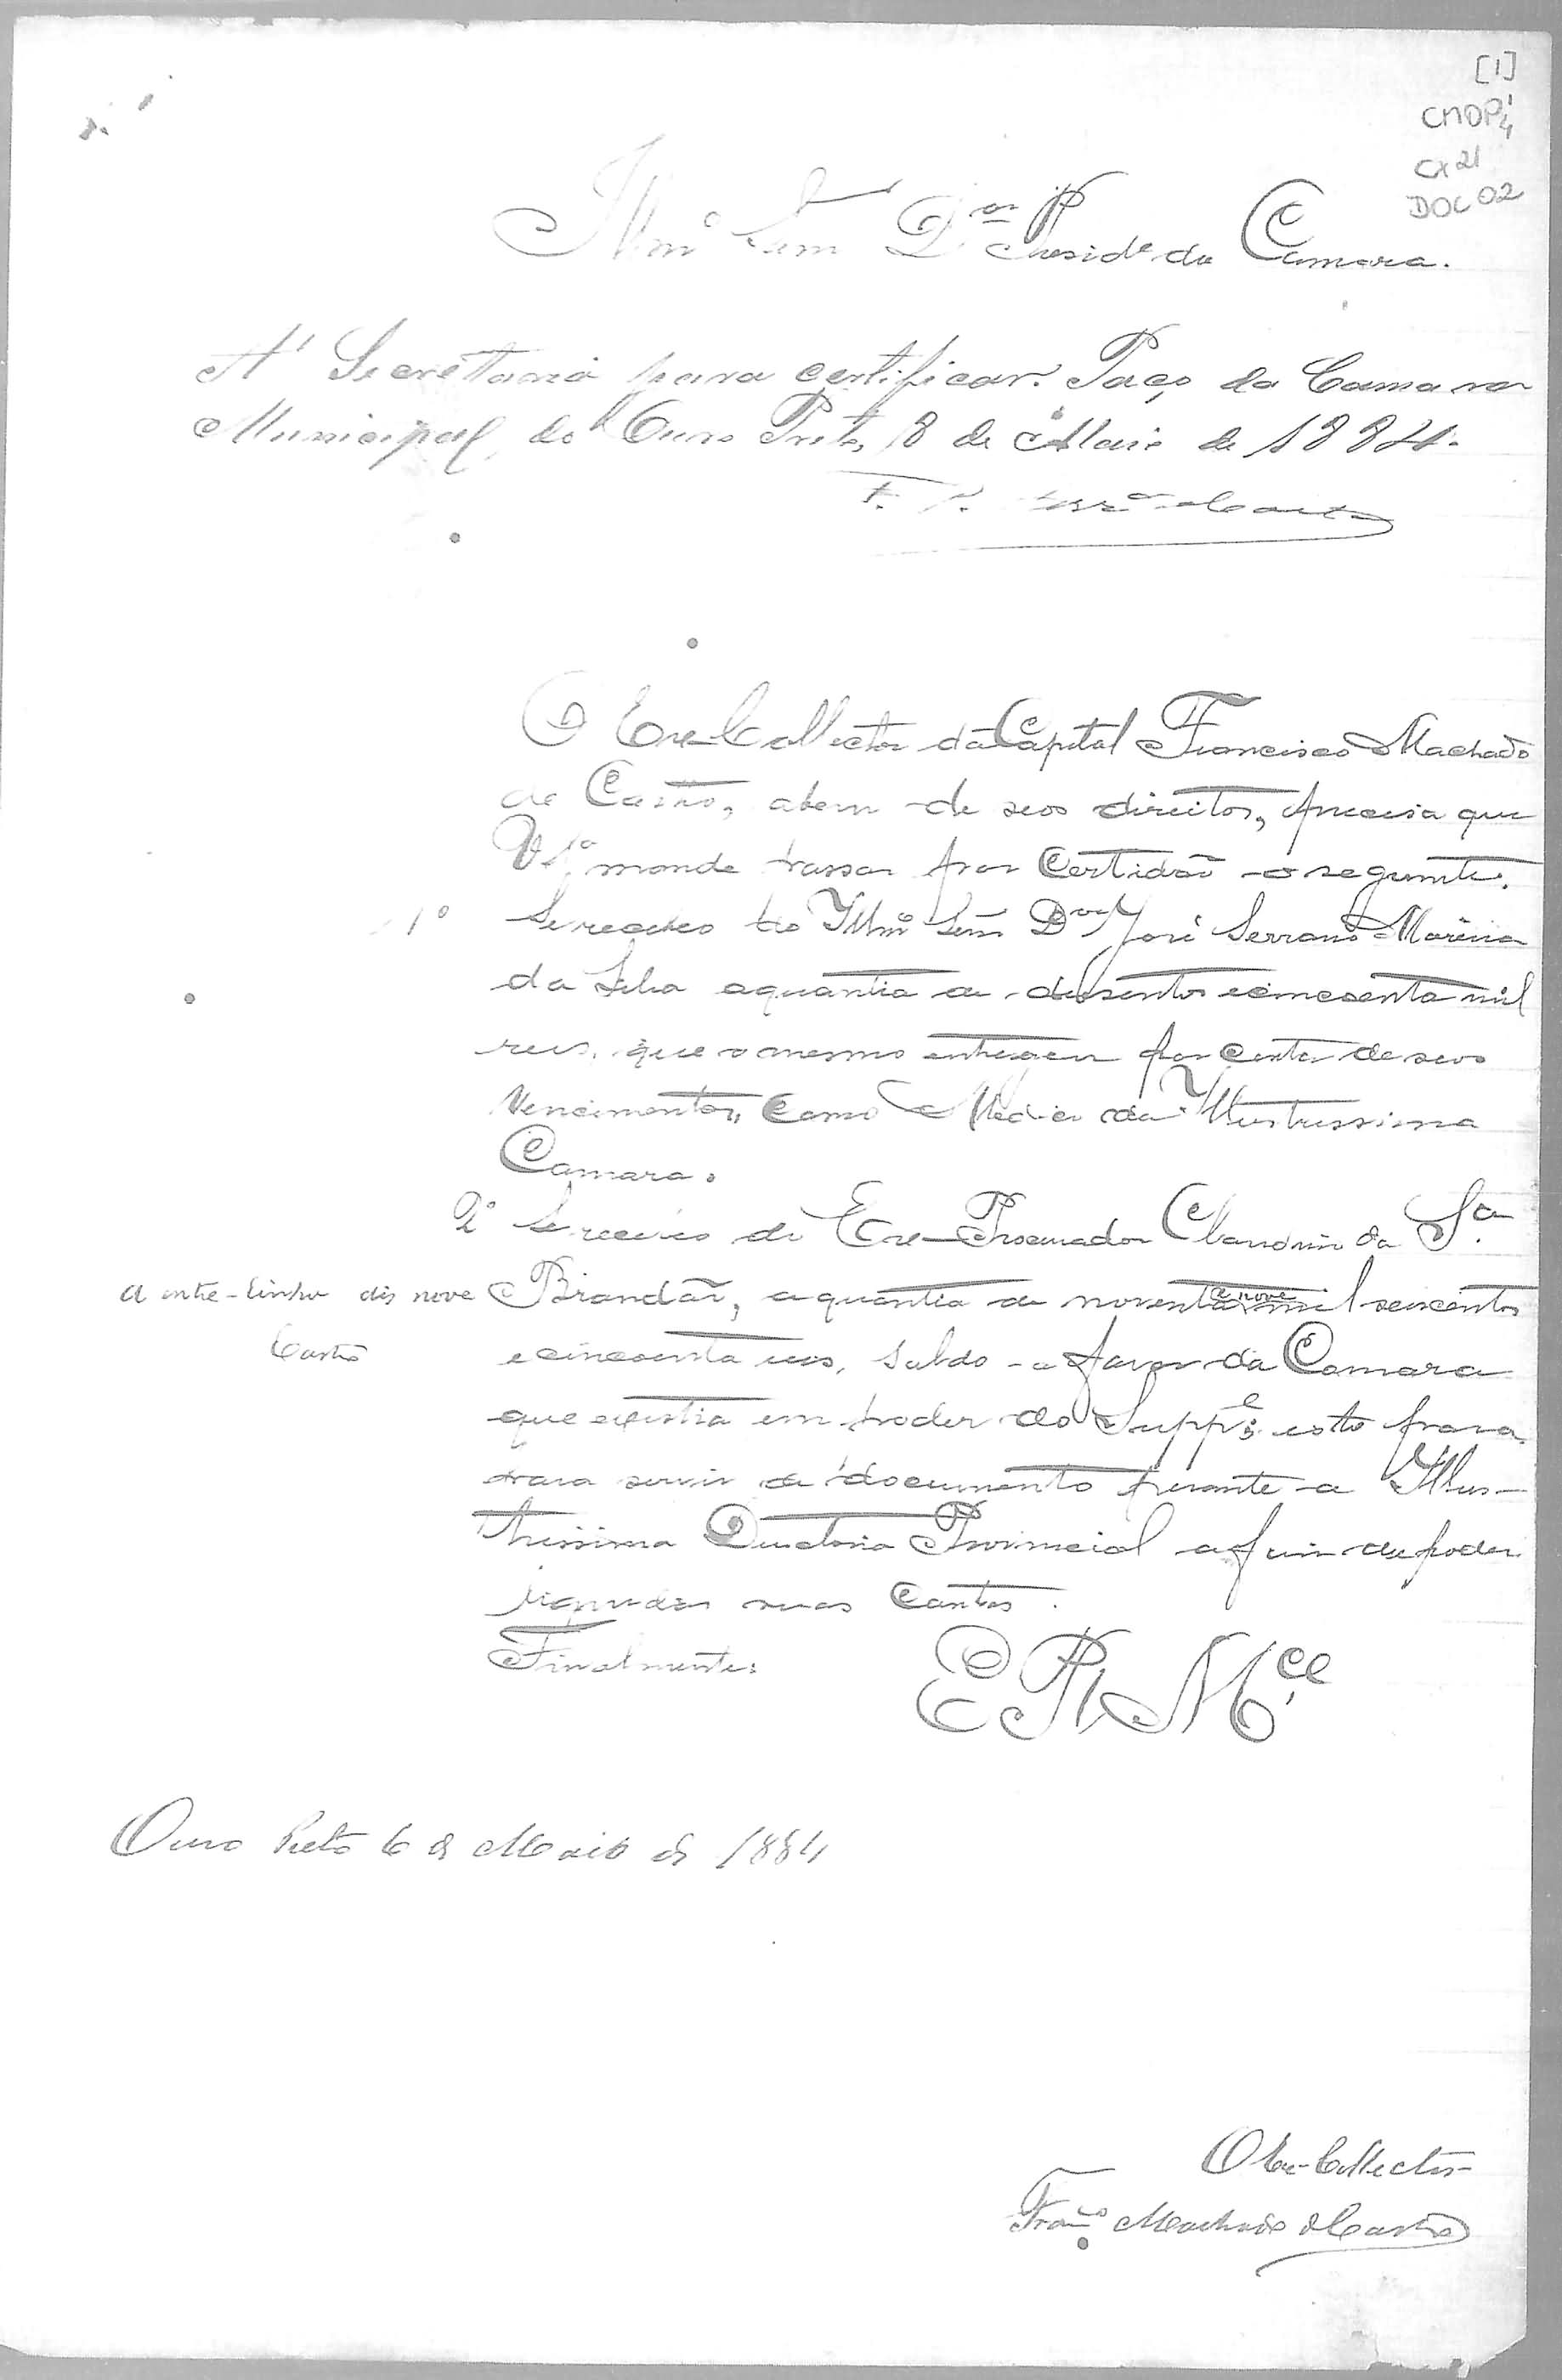 [1]
CMOP
CX 21
DOC 02
Illmo Senr Dor Preside da Camara.
A' Secretaria para certificar. Paço da Camara
Municipal do Ouro Preto, 8 de Maio de 1884.
O Ex-Collector da Capital Francisco Machado
de Castro, abem de seos direitos, precisa que
V Sa mande passar por Certidão o seguinte.
1º Se recebeo do Illmo Senr Dor José Serrano Moreira
da Silva aquantia de dusentos ecincoenta mil
reis, que o mesmo entregou por conta de seos
Vencimentos, Como Medico da Illustrissima
Camara.
2º Se recebeo do Ex-Procurador Claudino da Sa
Brandão, a quantia de noventa e nove mil seiscentos
A entre-linha diz nove
Castro
ecincoenta reis, saldo a favor da Camara
que existia em poder do Suppe; isto para
para servir de documento perante a Illus-
trissima Directoria Provincial afim de poder
liquidar suas Contas.
Finalmente:
E R Mce
Ouro Preto 6 de Maio de 1884
O Ex-Collector
Franco Machado de Castro